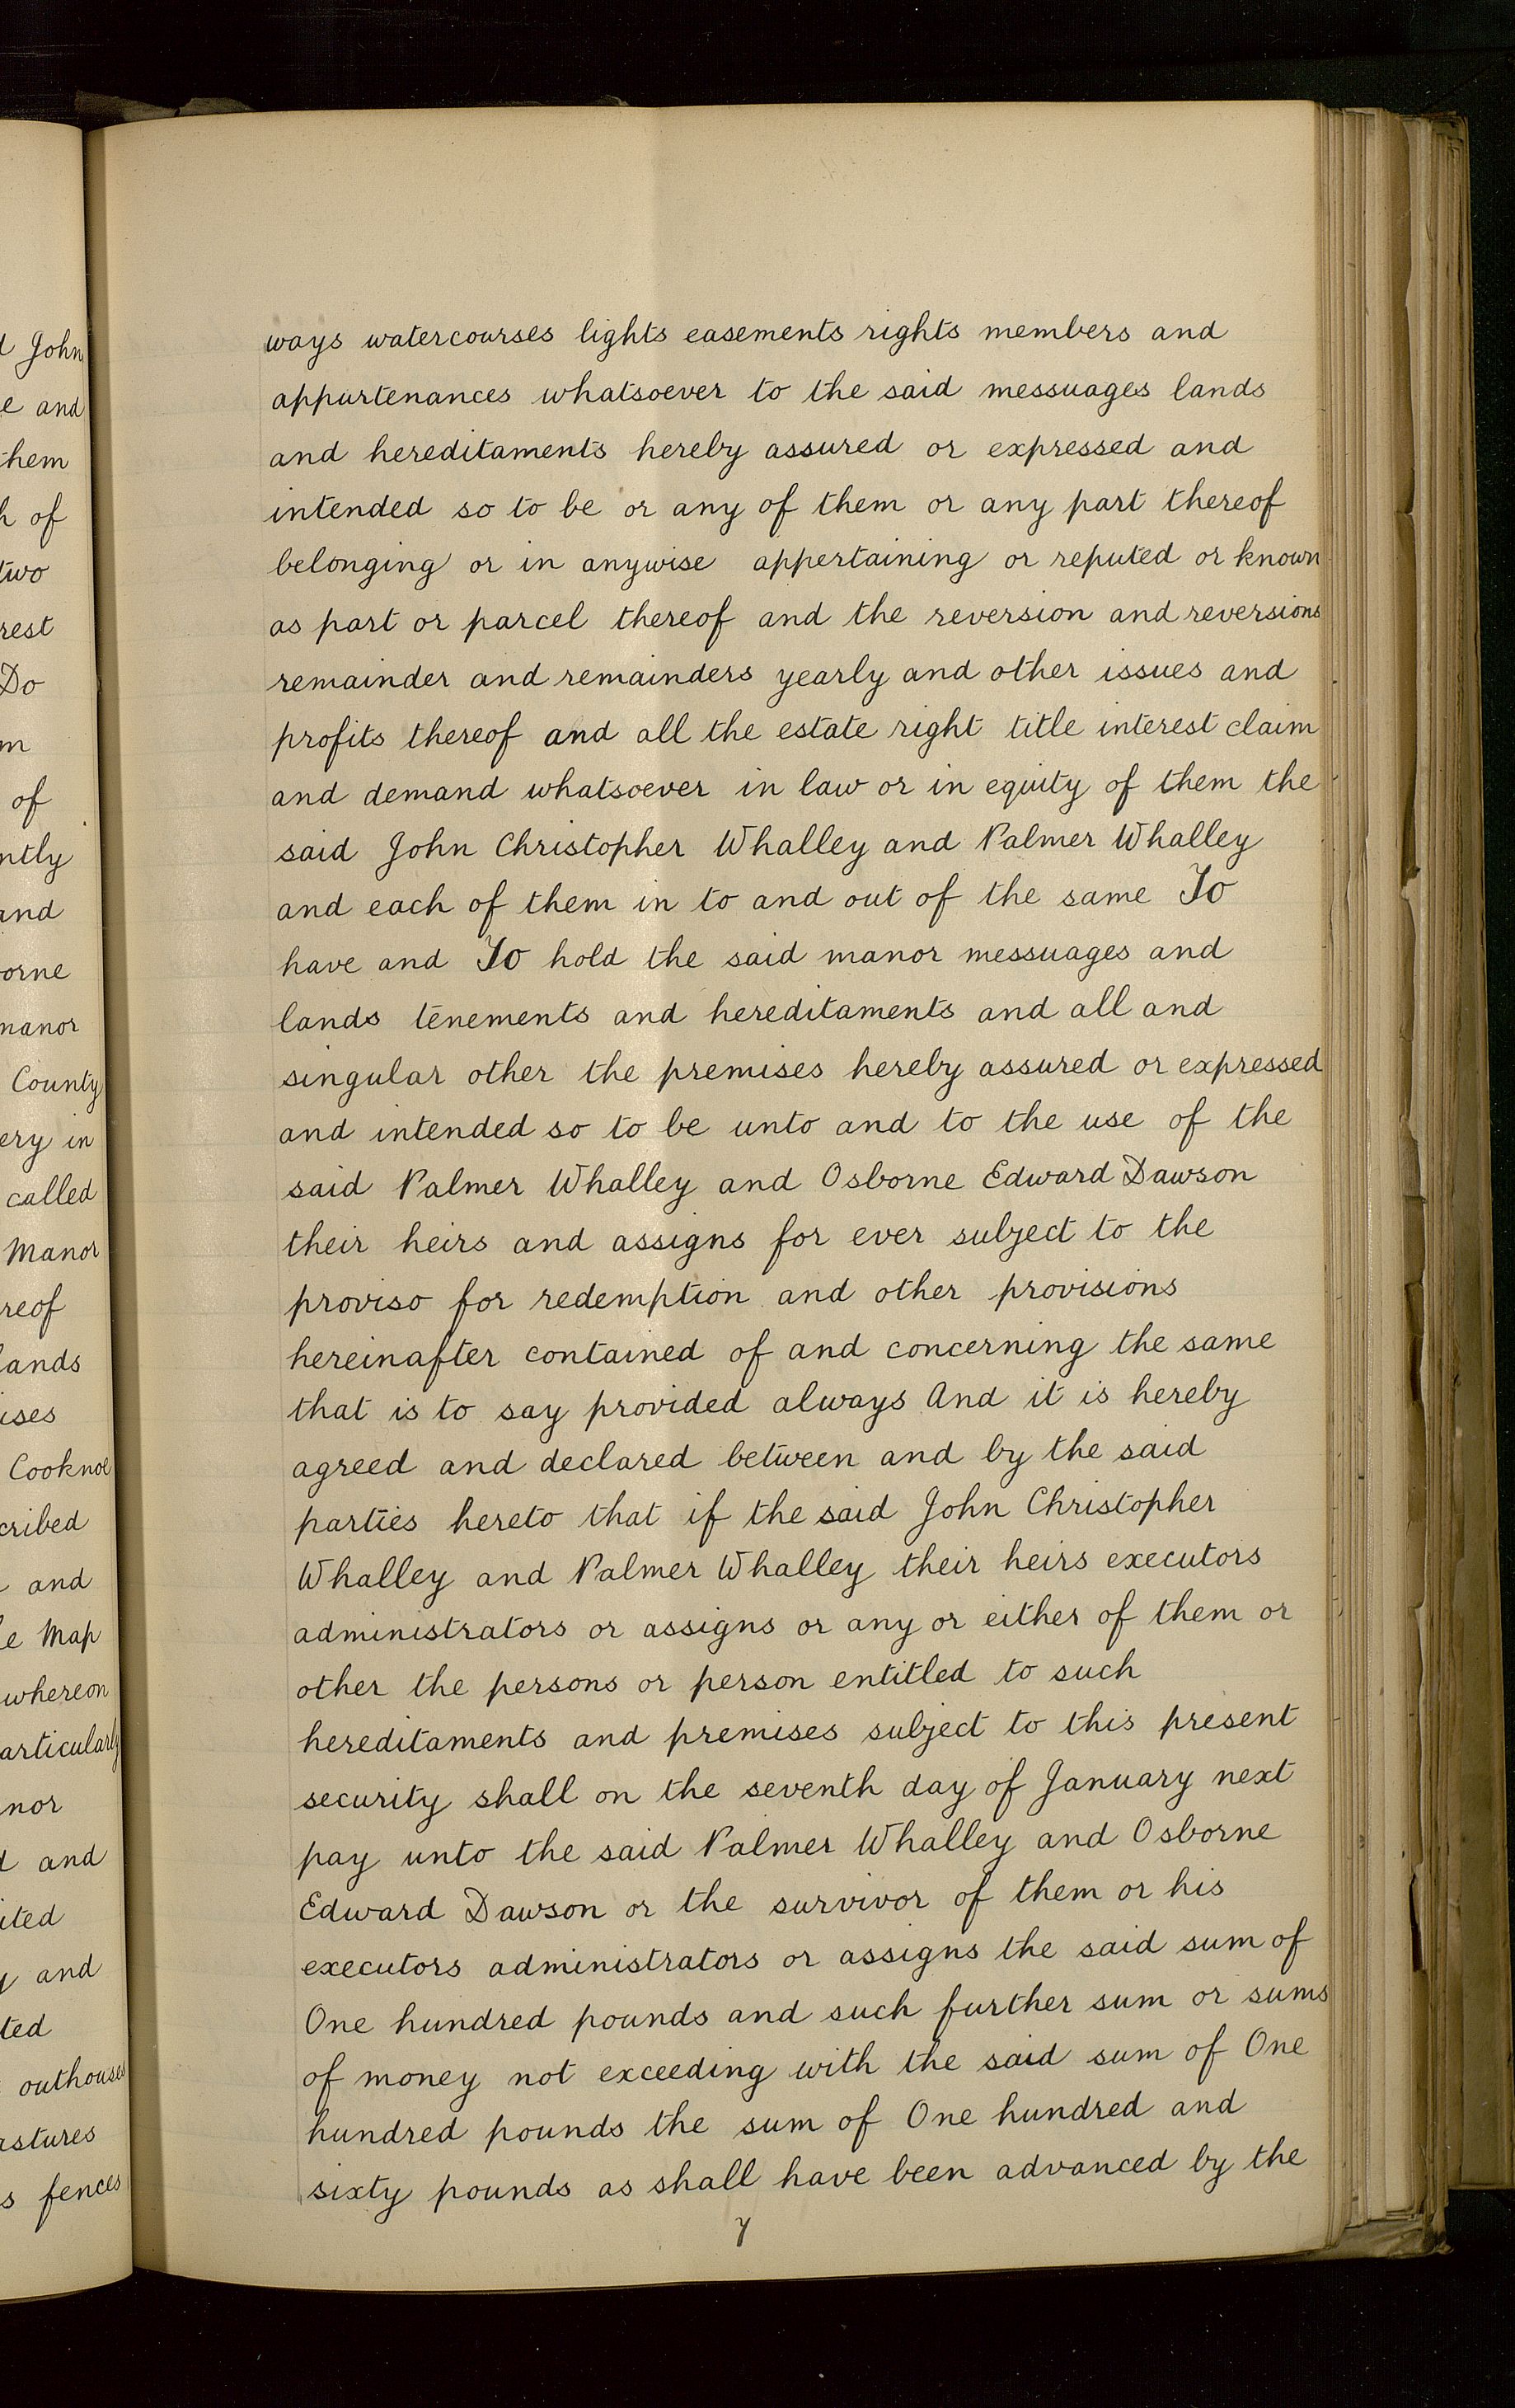 d John
e and
them
h of
two
rest
Do
m
of
ntly
and
orne
manor
County
ery in
called
Manor
reof
lands
ises
Cooknoe
cribed
and
le Map
whereon
articularly
nor
d and
ited
y and
ted
outhouses
astures
s fences
ways watercourses lights easements rights members and
appurtenances whatsoever to the said messuages lands
and hereditaments hereby assured or expressed and
intended so to be or any of them or any part thereof
belonging or in anywise appertaining or reputed or known
as part or parcel thereof and the reversion and reversions
remainder and remainders yearly and other issues and
profits thereof and all the estate right title interest claim
and demand whatsoever in law or in equity of them the
said John Christopher Whalley and Palmer Whalley
and each of them in to and out of the same To
have and To hold the said manor messuages and
lands tenements and hereditaments and all and
singular other the premises hereby assured or expressed
and intended so to be unto and to the use of the
said Palmer Whalley and Osborne Edward Dawson
their heirs and assigns for ever subject to the
proviso for redemption and other provisions
hereinafter contained of and concerning the same
that is to say provided always And it is hereby
agreed and declared between and by the said
parties hereto that if the said John Christopher
Whalley and Palmer Whalley their heirs executors
administrators or assigns or any or either of them or
other the persons or person entitled to such
hereditaments and premises subject to this present
security shall on the seventh day of January next
pay unto the said Palmer Whalley and Osborne
Edward Dawson or the survivor of them or his
executors administrators or assigns the said sum of
One hundred pounds and such further sum or sums
of money not exceeding with the said sum of One
hundred pounds the sum of One hundred and
sixty pounds as shall have been advanced by the
7